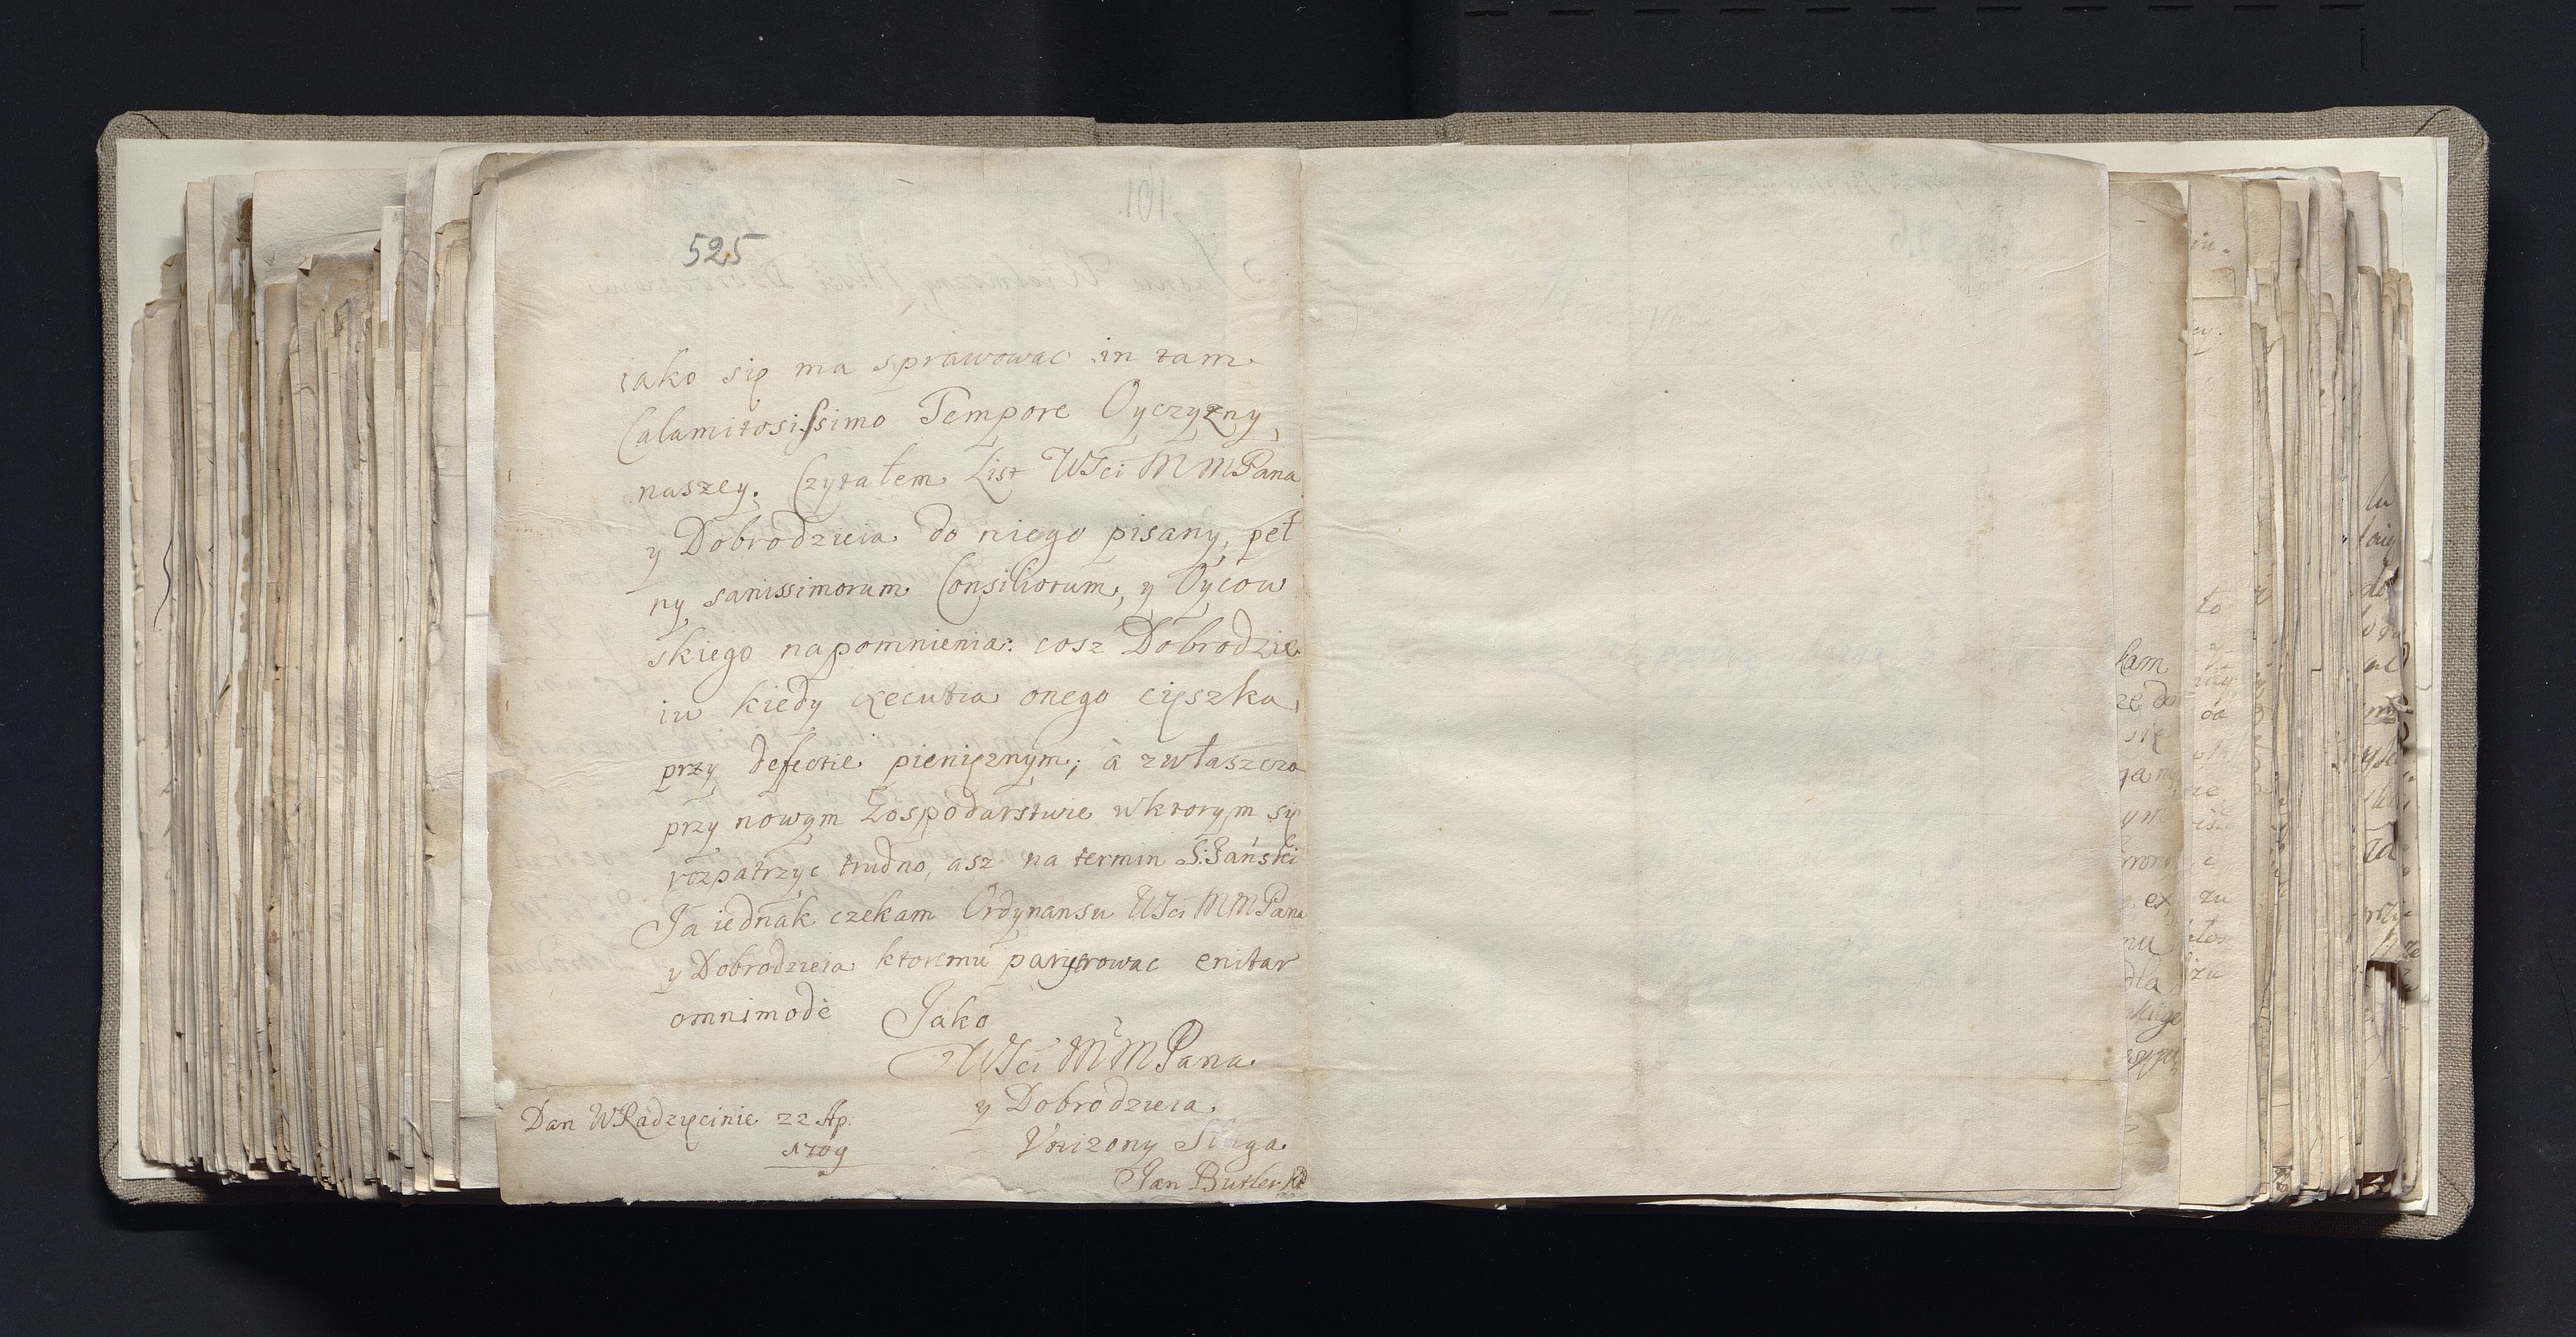 525
iako się ma sprawowac in tam
Calamitosissimo Tempore Oyczyzny
naszey. Czytałem List WJci MMPana
y Dobrodzieia do niego pisany, peł
ny sanissimorum Consiliorum, y Oycow
skiego napomnienia: cosz Dobrodzie
iu kiedy executia onego cięszka,
przy defectie pienięznym; à zwłaszcza
przy nowym Gospodarstwie wktorym się
rozpatrzyc trudno, asz na termin S: Jański
Ja iednak czekam Ordynansu WJci MMPana
y Dobrodzieia ktoremu paryerowac enitar
omnimodè Jako
WJci MMPana
y Dobrodzieia
Vnizony Sługa
Jan Butler
Dan WRadzięcinie 22 Ap:
1709